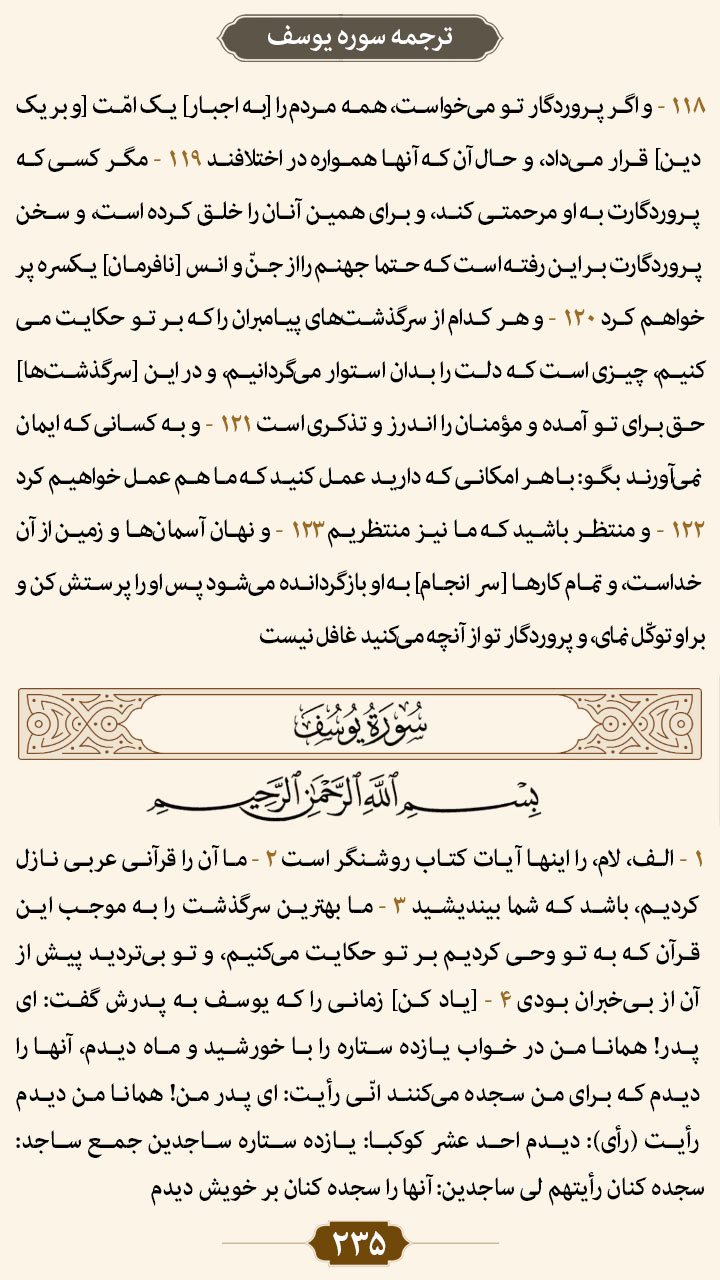 ترجمه سوره یوسف
۱۱۸ - و اگر پروردگار تو می‌خواست، همه مردم را [به اجبار] یک امّت [و بر یک
دین] قرار می‌داد، و حال آن که آنها همواره در اختلافند ۱۱۹ - مگر کسی که
پروردگارت به او مرحمتی کند، و برای همین آنان را خلق کرده است، و سخن
پروردگارت بر این رفته است که حتما جهنم را از جنّ و انس [نافرمان] یکسره پر
خواهم کرد ۱۲۰ - و هر کدام از سرگذشت‌های پیامبران را که بر تو حکایت می
کنیم، چیزی است که دلت را بدان استوار می‌گردانیم، و در این [سرگذشت‌ها]
حق برای تو آمده و مؤمنان را اندرز و تذکری است ۱۲۱ - و به کسانی که ایمان
نمی‌آورند بگو: با هر امکانی که دارید عمل کنید که ما هم عمل خواهیم کرد
۱۲۲ - و منتظر باشید که ما نیز منتظریم ۱۲۳ - و نهان آسمان‌ها و زمین از آن
خداست، و تمام کارها [سر انجام] به او بازگردانده می‌شود پس او را پرستش کن و
بر او توکّل نمای، و پروردگار تو از آنچه می‌کنید غافل نیست
سُورَةُ يُوسُفَ
بِسْمِ اللَّهِ الرَّحْمَٰنِ الرَّحِيمِ
۱ - الف، لام، را اینها آیات کتاب روشنگر است ۲ - ما آن را قرآنی عربی نازل
کردیم، باشد که شما بیندیشید ۳ - ما بهترین سرگذشت را به موجب این
قرآن که به تو وحی کردیم بر تو حکایت می‌کنیم، و تو بی‌تردید پیش از
آن از بی‌خبران بودی ۴ - [یاد کن] زمانی را که یوسف به پدرش گفت: ای
پدر! همانا من در خواب یازده ستاره را با خورشید و ماه دیدم، آنها را
دیدم که برای من سجده می‌کنند انّی رأیت: ای پدر من! همانا من دیدم
رأیت (رأی): دیدم احد عشر کوکبا: یازده ستاره ساجدین جمع ساجد:
سجده کنان رأیتهم لی ساجدین: آنها را سجده کنان بر خویش دیدم
۲۳۵